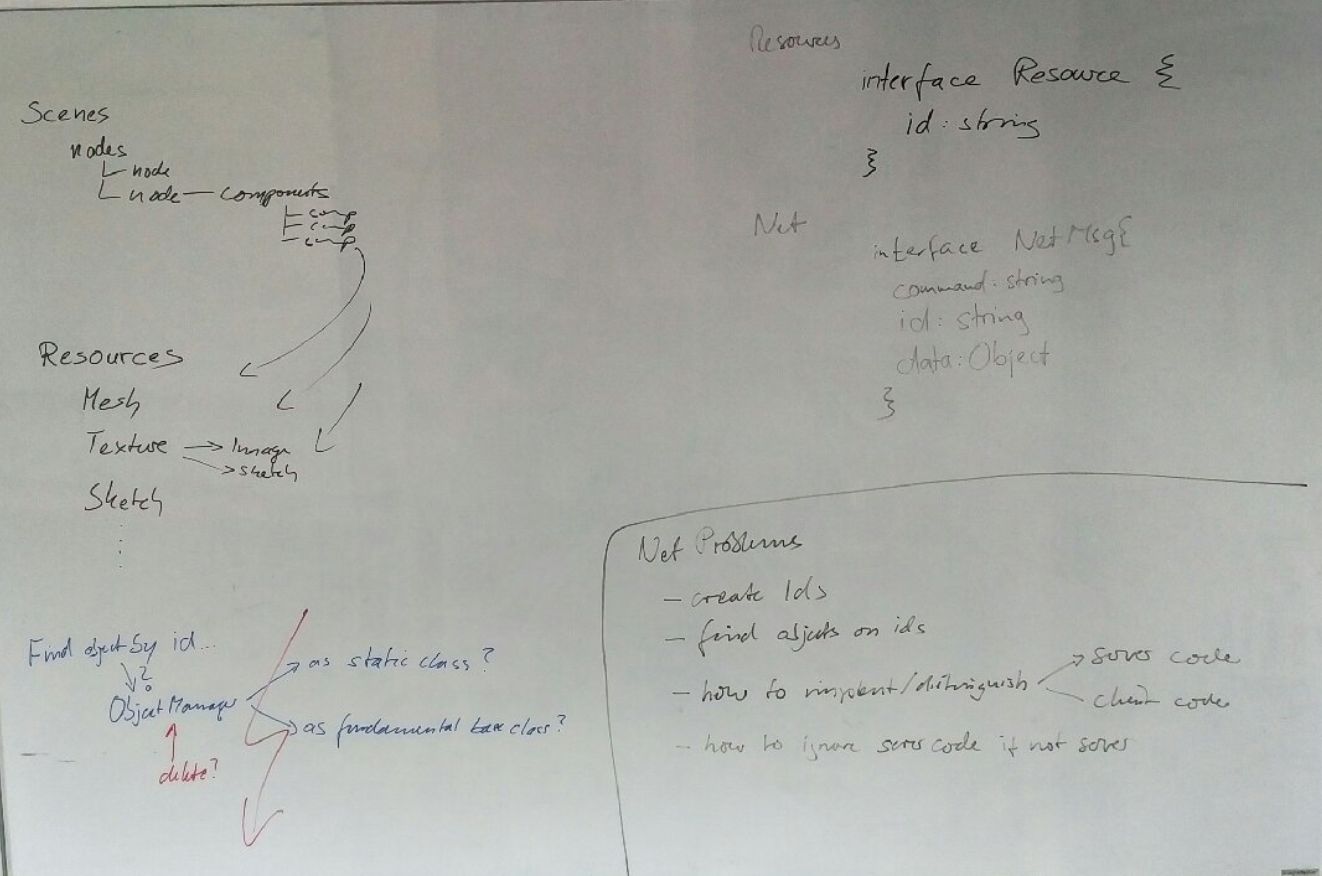 Scenes
nodes
node
node — components
comp
comp
comp
Resources
Mesh
Texture → Image
→ Sketch
Sketch
Find object by id...
?
ObjectManager
→ as static class?
→ as fundamental base class?
delete?
Resources
interface Resource {
id: string
}
Net
interface NetMsg{
command: string
id: string
data: Object
}
Net Problems
- create Ids
- find objects on ids
- how to /distinguish
→ server code
client code
- how to ignore server code if not server